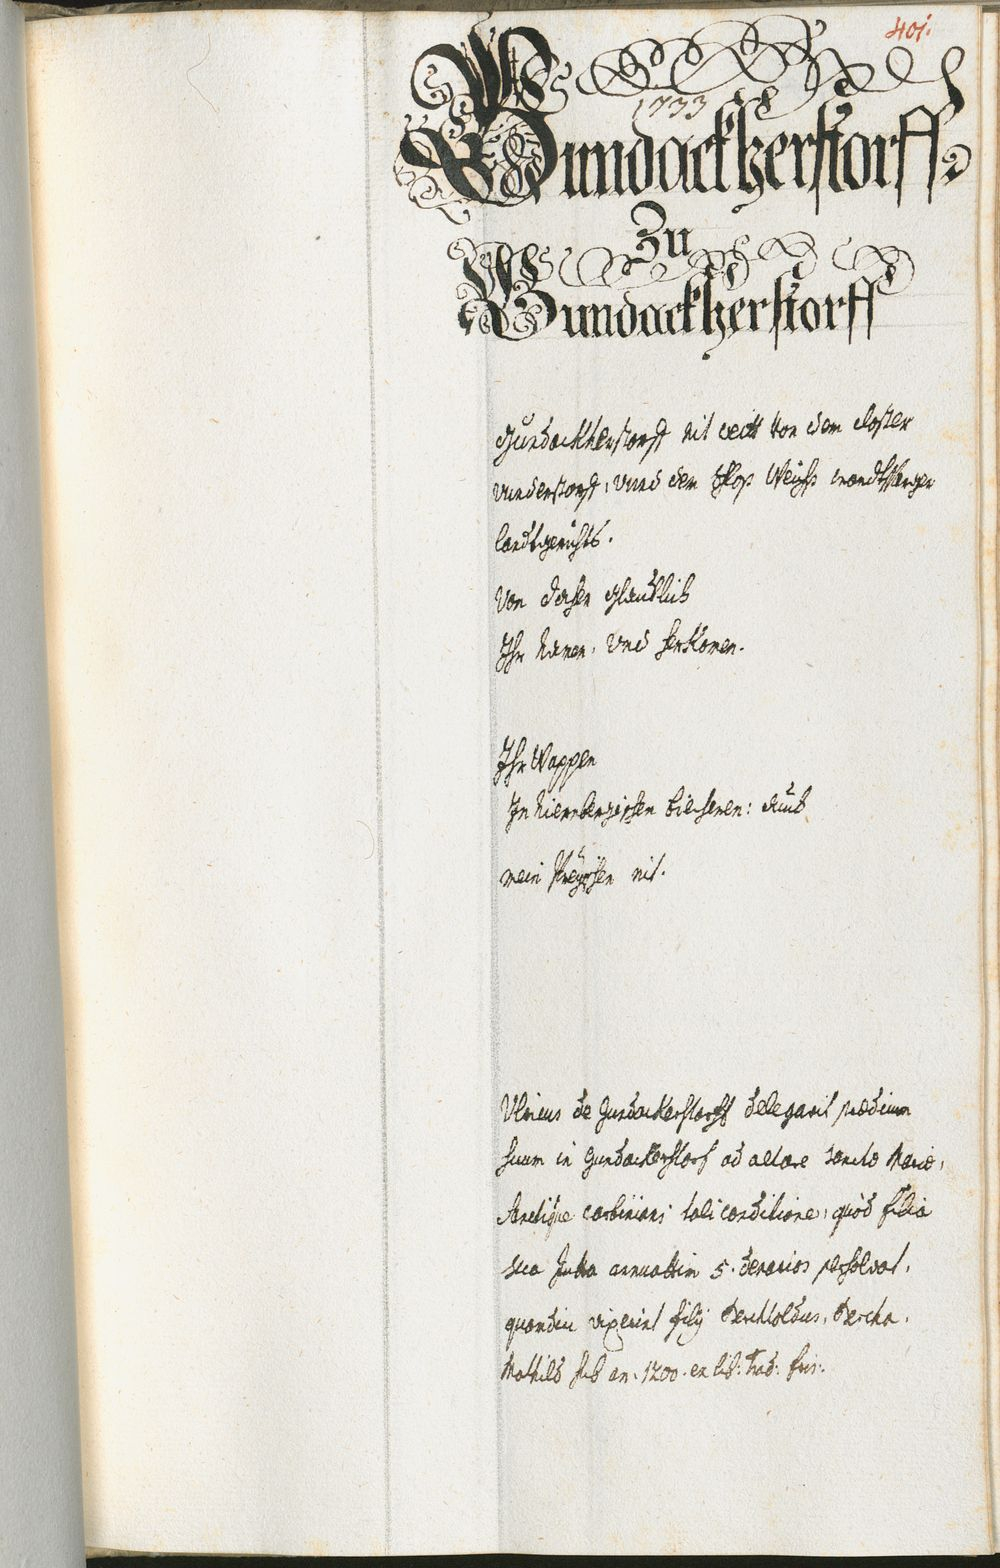 401.
1733
Gundackherstorff
Zu
Gundackherstorff
Gundackherstorff nit weitt von dem closter
vnderstorff, vnnd dem schloss Weichs
landtgerichts.
Von disen glaublich
Ihr namen, vnd herkomen.
Ihr Wappen
In hiernbergischen biechern: auch
mein nit.
Ulricus de Gundackerstorff delegavit prædium
suum in Gundackerstorf ad altare sanctæ Mariæ,
Sanctique corbiniani tali conditione, quòd filia
sua Jutta annuattim 5. denarios persolvat,
quamdiu vixerint filij Berchtoldus, Bercha,
Mathild sub an. 1200. ex lib: trad: fris: